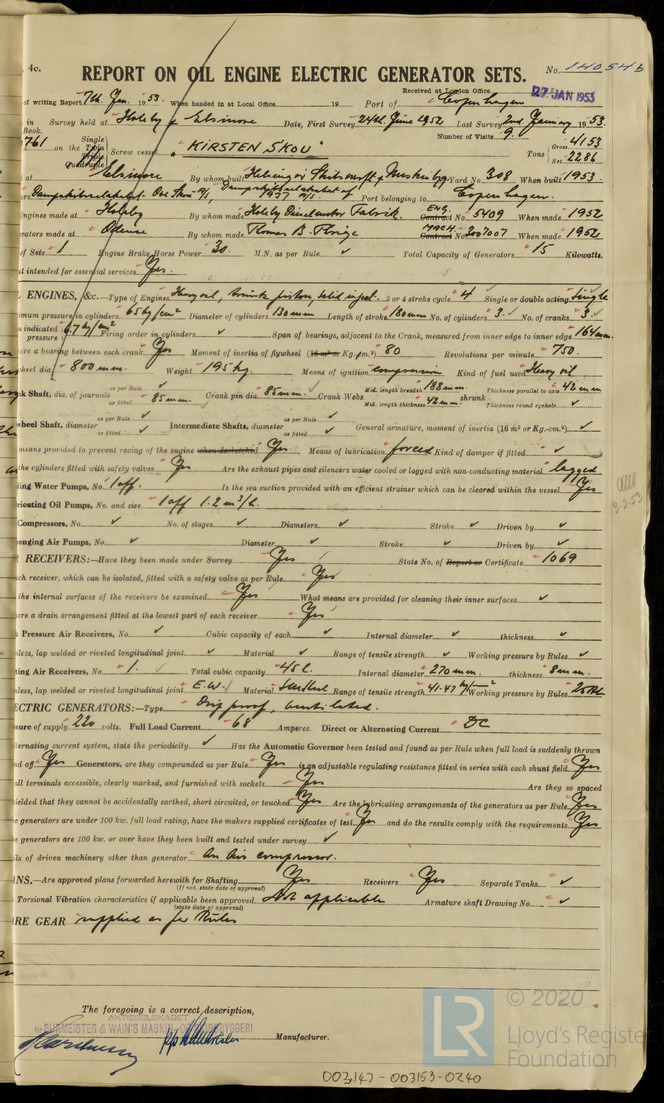 4c. REPORT ON OIL ENGINE ELECTRIC GENERATOR SETS. No. 140546
Received at London Office 27 JAN 1953
of writing Report 7th Jan. 1953 When handed in at Local Office 19 Port of Copenhagen
in Survey held at Holeby & Elsinore Date, First Survey 24th June 1952 Last Survey 2nd January 1953
Book. Number of Visits 9
761 on the Single Twin Triple Quadruple Screw vessel "KIRSTEN SKOU" Tons Gross 4153 Net 2286
at Elsinore By whom built Yard No. 308 When built 1953
Port belonging to Copenhagen
Engines made at Holeby By whom made Holeby Dieselmotor Fabrik ENG. Contract No. 5409 When made 1952
erators made at Odense By whom made Thomas B. Thrige MACH. Contract No. 3007007 When made 1952
of Sets 1 Engine Brake Horse Power 30 M.N. as per Rule ✓ Total Capacity of Generators 15 Kilowatts.
t intended for essential services Yes.
L ENGINES, &c.—Type of Engines Heavy oil, trunk piston, solid injec. 2 or 4 stroke cycle 4 Single or double acting Single
imum pressure in cylinders 65 kg/cm² Diameter of cylinders 130 mm Length of stroke 180 mm No. of cylinders 3 No. of cranks 3
n indicated pressure 6.7 kg/cm² Firing order in cylinders ✓ Span of bearings, adjacent to the Crank, measured from inner edge to inner edge 164 mm
ere a bearing between each crank Yes Moment of inertia of flywheel (16 m² or Kg.-m²) 80 Revolutions per minute 750.
heel dia. 800 mm. Weight 195 kg. Means of ignition compression Kind of fuel used Heavy oil
nk Shaft, dia. of journals as per Rule ✓ as fitted 85 mm. Crank pin dia. 85 mm. Crank Webs Mid. length breadth 188 mm Mid. length thickness 42 mm shrunk Thickness parallel to axis 42 mm Thickness round eyehole ✓
wheel Shaft, diameter as per Rule ✓ as fitted ✓ Intermediate Shafts, diameter as per Rule ✓ as fitted ✓ General armature, moment of inertia (16 m² or Kg.-cm.²) ✓
means provided to prevent racing of the engine when declutched Yes Means of lubrication forced Kind of damper if fitted ✓
the cylinders fitted with safety valves Yes Are the exhaust pipes and silencers water cooled or lagged with non-conducting material lagged
ling Water Pumps, No. 1 off. Is the sea suction provided with an efficient strainer which can be cleared within the vessel Yes
ricating Oil Pumps, No. and size 1 off 1.2 m³/h.
Compressors, No. ✓ No. of stages ✓ Diameters ✓ Stroke ✓ Driven by ✓
enging Air Pumps, No. ✓ Diameter ✓ Stroke ✓ Driven by ✓
R RECEIVERS:—Have they been made under Survey Yes State No. of Report or Certificate 1069
ach receiver, which can be isolated, fitted with a safety valve as per Rule Yes
the internal surfaces of the receivers be examined Yes What means are provided for cleaning their inner surfaces ✓
ere a drain arrangement fitted at the lowest part of each receiver Yes
h Pressure Air Receivers, No. ✓ Cubic capacity of each ✓ Internal diameter ✓ thickness ✓
mless, lap welded or riveted longitudinal joint ✓ Material ✓ Range of tensile strength ✓ Working pressure by Rules ✓
ting Air Receivers, No. 1. Total cubic capacity 45 l. Internal diameter 270 mm. thickness 8 mm.
mless, lap welded or riveted longitudinal joint E.W. Material Range of tensile strength 41-47 kg/mm² Working pressure by Rules
ECTRIC GENERATORS:—Type Drip proof, ventilated.
sure of supply 220 volts. Full Load Current 68 Amperes. Direct or Alternating Current DC
lternating current system, state the periodicity ✓ Has the Automatic Governor been tested and found as per Rule when full load is suddenly thrown
nd off Yes Generators, are they compounded as per Rule Yes is an adjustable regulating resistance fitted in series with each shunt field Yes
all terminals accessible, clearly marked, and furnished with sockets Yes Are they so spaced
hielded that they cannot be accidentally earthed, short circuited, or touched Yes Are the lubricating arrangements of the generators as per Rule Yes
e generators are under 100 kw. full load rating, have the makers supplied certificates of test Yes and do the results comply with the requirements Yes
e generators are 100 kw. or over have they been built and tested under survey ✓
ils of driven machinery other than generator An air compressor.
NS.—Are approved plans forwarded herewith for Shafting Yes Receivers Yes Separate Tanks ✓
(If not, state date of approval)
Torsional Vibration characteristics if applicable been approved Not applicable Armature shaft Drawing No. ✓
(state date of approval)
RE GEAR supplied as per Rules
3-2-53
The foregoing is a correct description,
AKTIESELSKABET
for BURMEISTER & WAIN'S MASKIN- OG SKIBSBYGGERI
Manufacturer.
LR
© 2020
Lloyd's Register
Foundation
003147-003153-0240